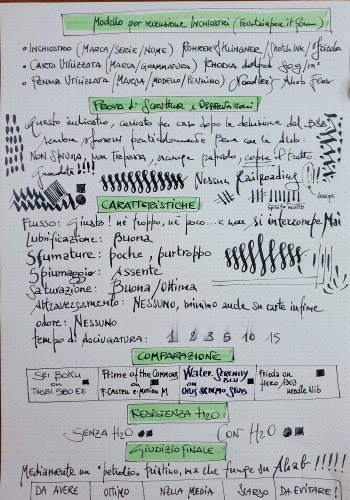 Modello per recensione Inchiostri (Fountainpen.it Forum)
• Inchiostro (Marca/Serie/Nome) Rohrer & Klingner/Sketch Ink/Frieda
• Carta Utilizzata (Marca/Grammatura) Rhodia dotpad 80g/m²
• Penna Utilizzata (Marca/Modello/Pennino) Noodler's Ahab Flex
Prova di Scrittura e Osservazioni
Questo inchiostro, caricato per caso dopo la delusione dal
sembra sposarsi perfettamente bene con la Ahab:
Non spiuma, non trapassa, asciuga rapido, copre il tratto
Guardate!!!!
Nessun Railroading!!!
Woops
spinto molto
CARATTERISTICHE
Flusso: Giusto! né troppo, né poco... e non si interrompe Mai
Lubrificazione: Buona
Sfumature: poche, purtroppo
Spiumaggio: Assente
Saturazione: Buona/Ottima
Attraversamento: Nessuno, minimo anche su carte infime
odore: Nessuno
tempo di Asciugatura: 1 2 3 5 10 15
COMPARAZIONE
Sei Boku on TWSBI 580 EF
Prime of the Commons on F.Castell e-motion M
Water Serenity Blu on Opus
Frieda on Hero 1303 needle nib
RESISTENZA H2O
SENZA H2O CON H2O
GIUDIZIO FINALE
Mediamente un "petrolio" , ma che funge su Ahab!!!!!
DA AVERE OTTIMO NELLA MEDIA SCARSO DA EVITARE!